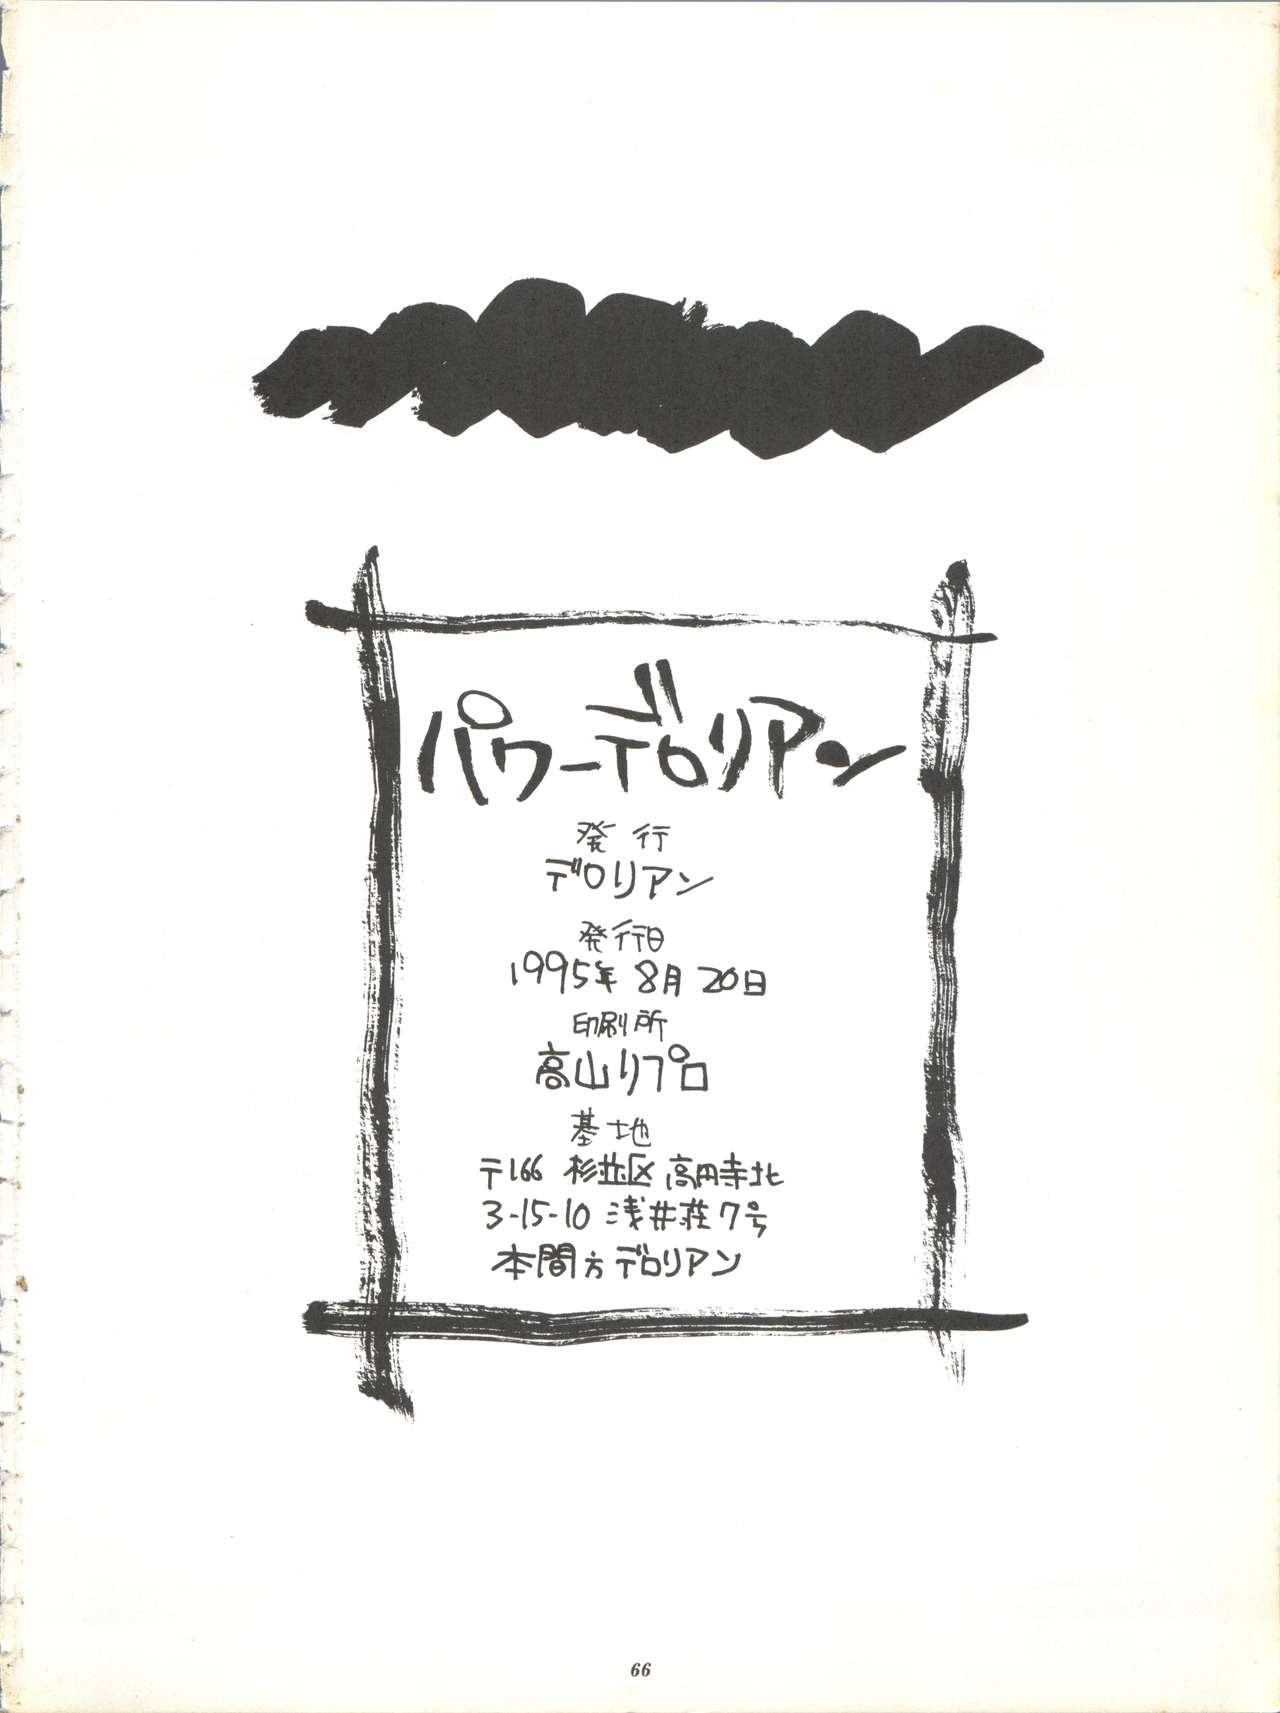 パワーデロリアン
発行
デロリアン
発行日
1995年8月20日
印刷所
高山リプロ
基地
〒166 杉並区高円寺北
3-15-10 浅井荘7号
本間方デロリアン
66